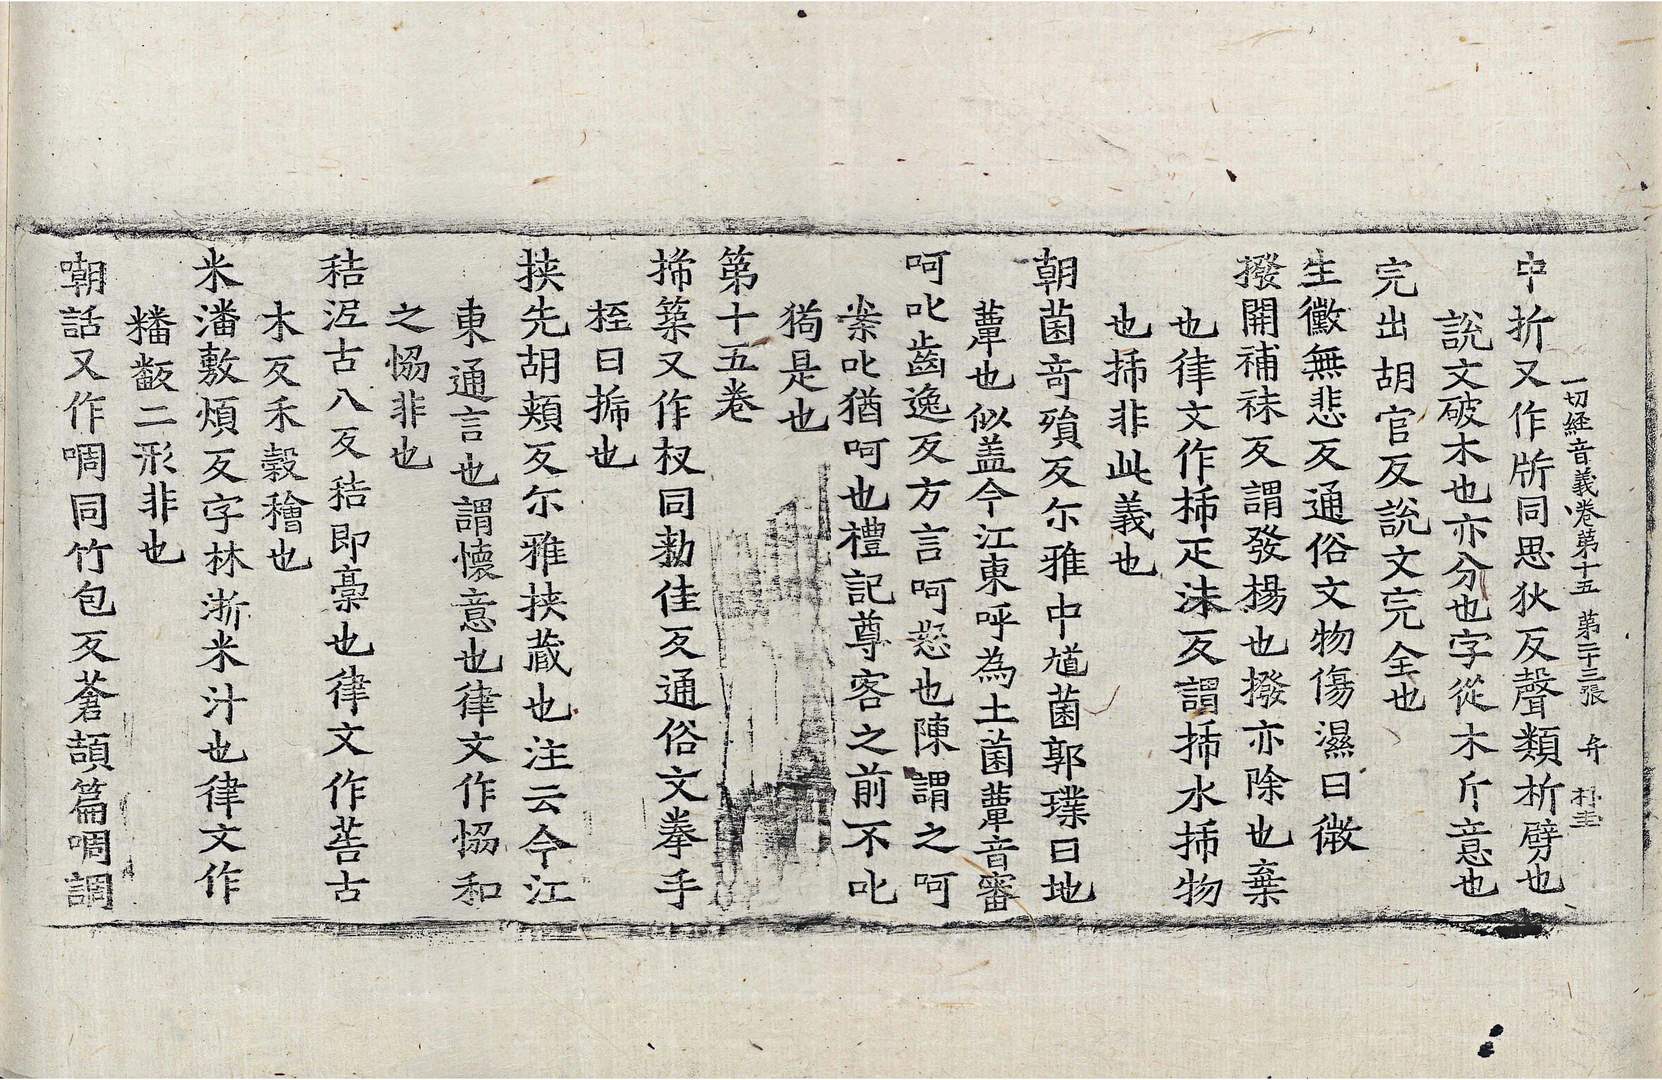 一切経音義卷第十五 第二十三張 弁 朴圭
中折又作𣂪同思狄反聲類析劈也
說文破木也亦分也字從木斤意也
完出胡官反說文完全也
生黴無悲反通俗文物傷濕曰黴
撥開補秣反謂發揚也撥亦除也棄
也律文作柹疋沫反謂㧊水㧊物
也㧊非此義也
朝菌奇殞反尓雅中馗菌郭璞曰地
蕈也似盖今江東呼為土菌蕈音審
呵叱齒逸反方言呵怒也陳謂之呵
案叱猶呵也禮記尊客之前不叱
狗是也
第十五卷
搋築又作杈同勑佳反通俗文拳手
挃曰搋也
挾先胡頰反尓雅挾藏也注云今江
東通言也謂懷意也律文作恊和
之恊非也
秸泥古八反秸即稾也律文作䓤古
木反禾穀穭也
米潘敷煩反字林淅米汁也律文作
𥼞𤳖二形非也
嘲話又作啁同竹包反蒼頡篇啁調